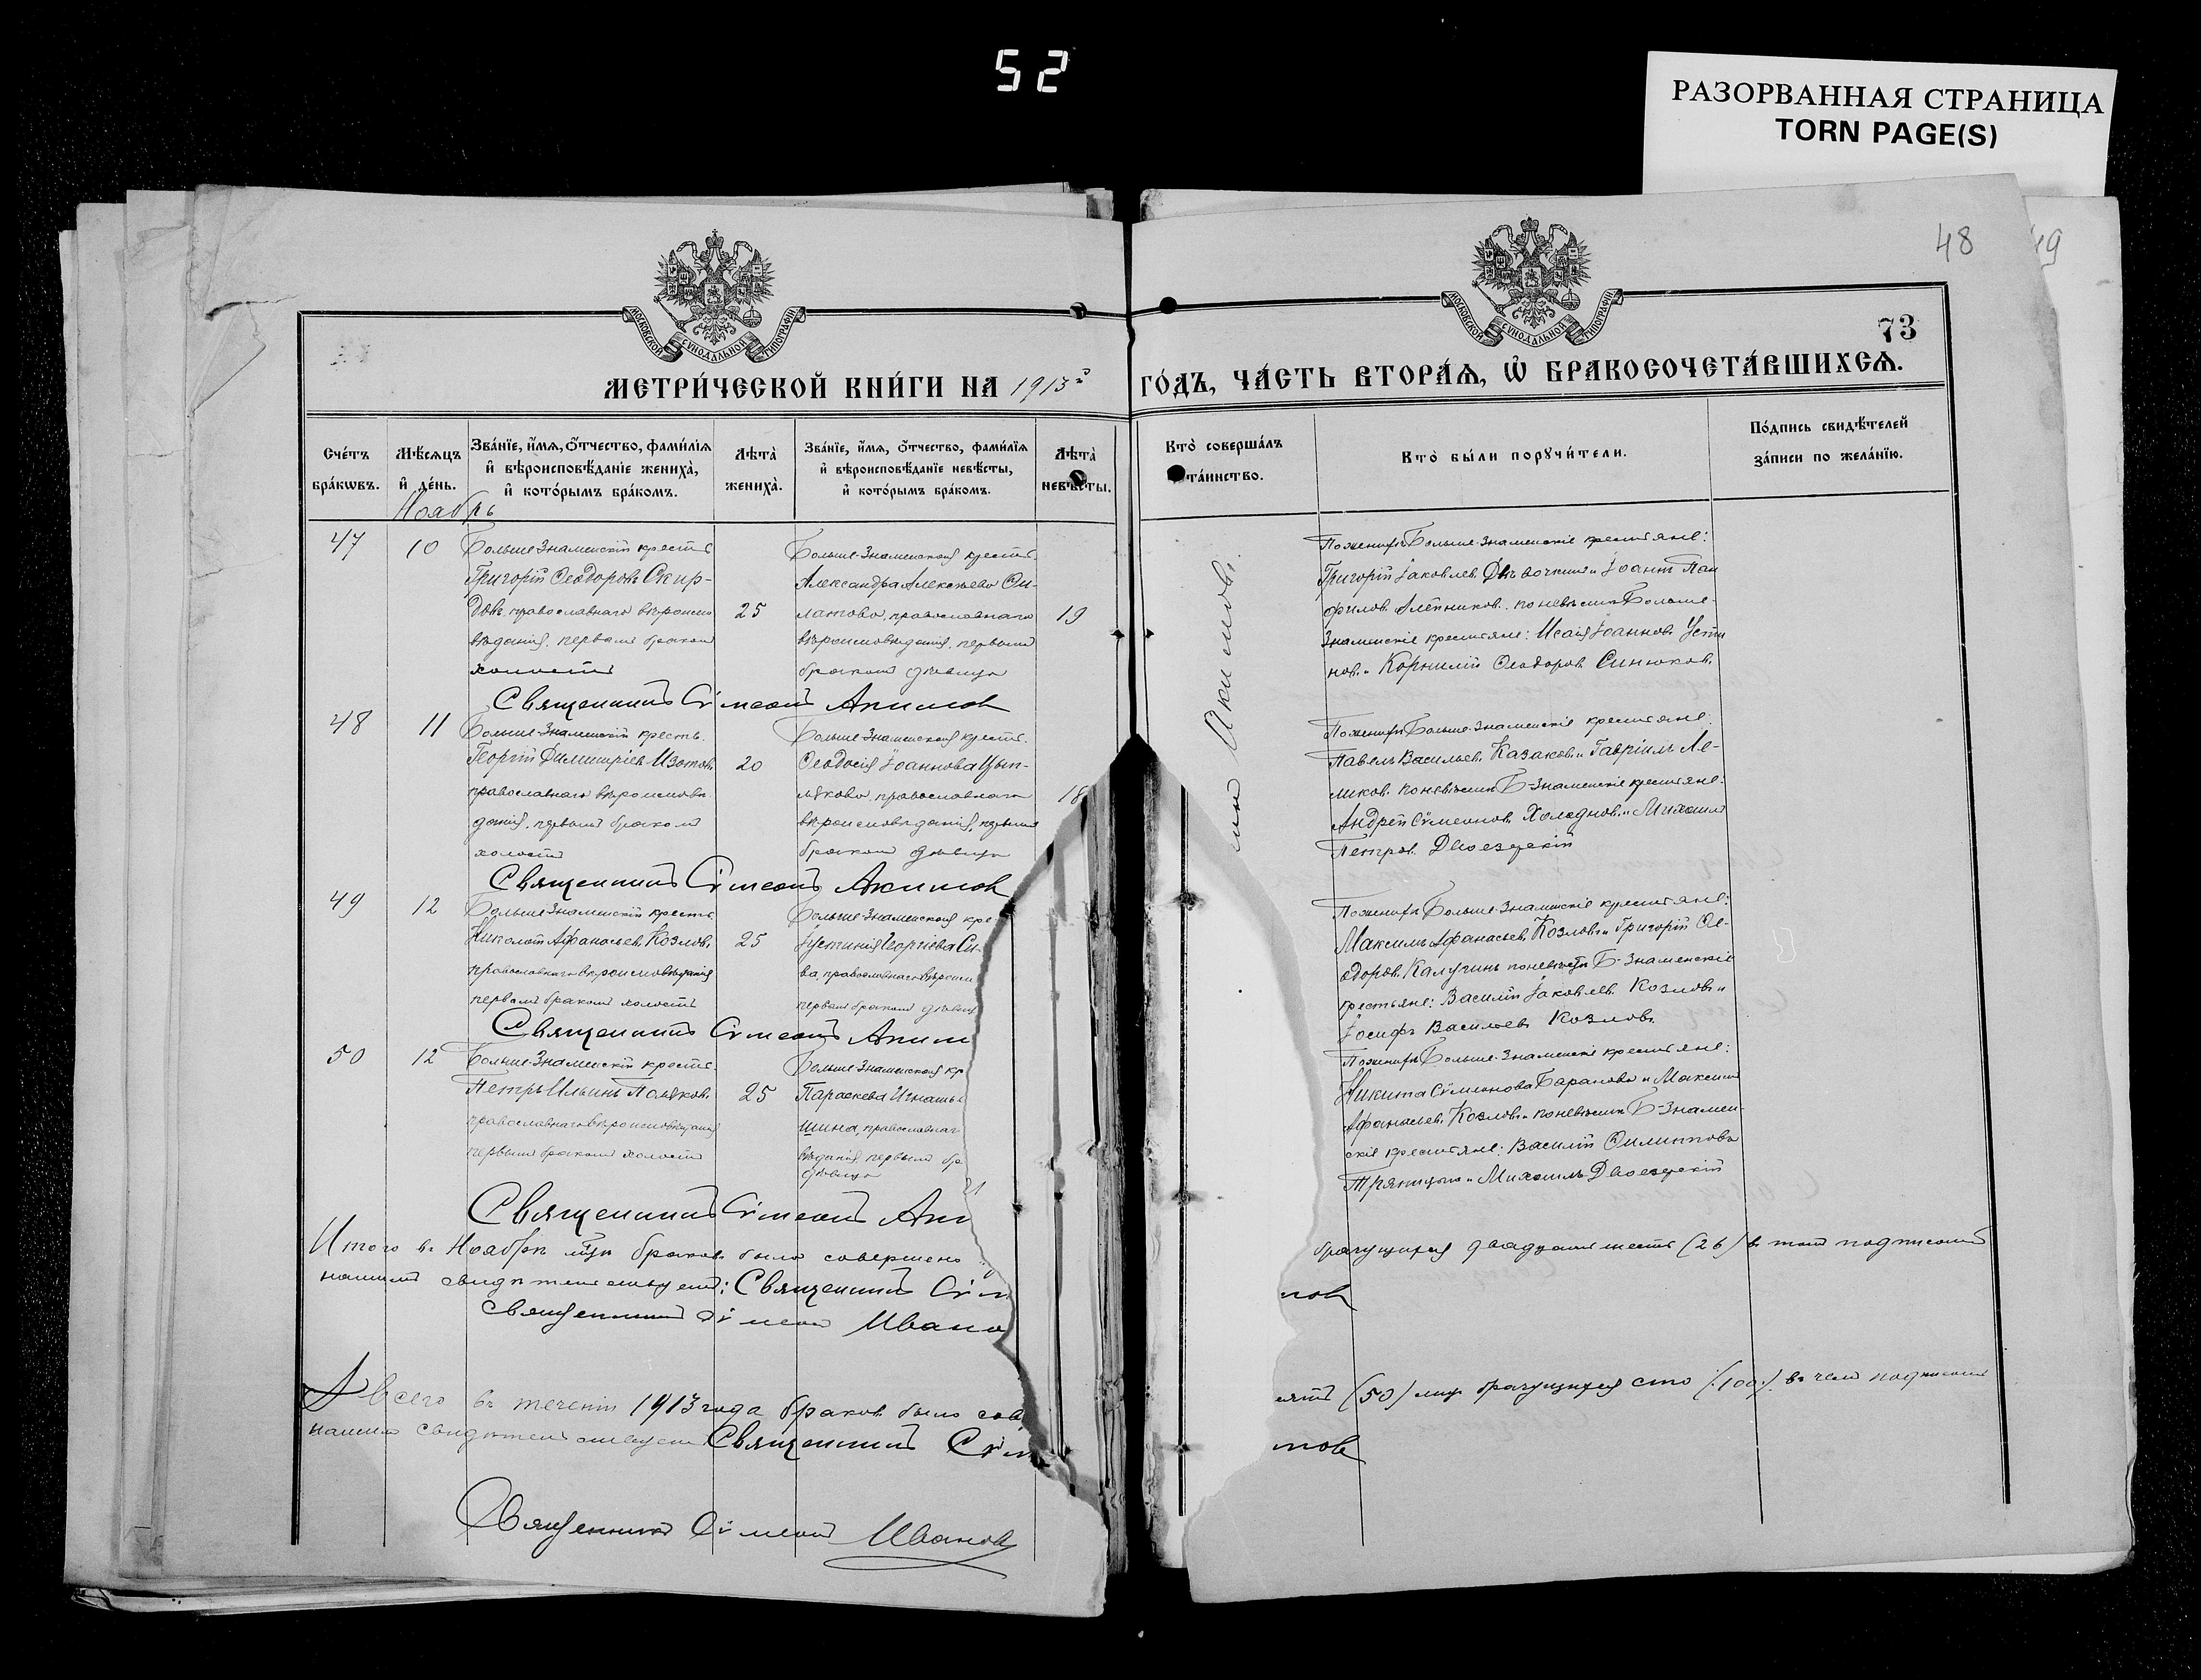 52
РАЗОРВАННАЯ СТРАНИЦА
TORN PAGE(S)
48
49
73
МОСКОВСКОЙ СѴНОДАЛЬНОЙ ТИПОГРАФІИ
МОСКОВСКОЙ СѴНОДАЛЬНОЙ ТИПОГРАФІИ
МЕТРИ́ЧЕСКОЙ КНИ́ГИ НА 1913 ГО́ДЪ, ЧА́СТЬ ВТОРА́Ѧ, Ѡ҆ БРАКОСОЧЕТА́ВШИХСѦ.
Сче́тъ бра́кѡвъ.
Мѣ́сѧцъ и҆ де́нь.
Зва́нїе, и҆́мѧ, ѻ҆́тчество, фами́лїѧ и҆ вѣроисповѣ́данїе жениха̀, и҆ кото́рымъ бра́комъ.
Лѣта̀ жениха̀.
Зва́нїе, и҆́мѧ, ѻ҆́тчество, фами́лїѧ и҆ вѣроисповѣ́данїе невѣ́сты, и҆ кото́рымъ бра́комъ.
Лѣта̀ невѣ́сты.
Кто̀ соверша́лъ та́инство.
Кто̀ бы́ли порꙋчи́тели.
По́дпись свидѣ́телей за́писи по жела́нїю.
Ноябрь
47
10
Больше-Знаменскій крестья
Григорій Ѳеодоровъ Скир-
довъ, православнаго вѣроиспо
вѣданія, первымъ бракомъ
холостъ
25
Больше-Знаменская крестья
Александра Алексѣева Фи-
латова, православнаго
вѣроисповѣданія, первымъ
бракомъ дѣвица
19
Акимовъ.
По женихѣ Больше-Знаменскіе крестьяне:
Григорій Іаковлев. Дѣвочкинъ и Іоаннъ Пан
филов. Алейников. по невѣстѣ Больше-
Знаменскіе крестьяне: Исаія Іоаннов. Усти
нов. и Корнилій Ѳеодоров. Синюков.
Священникъ Сѵмеонъ Акимов
48
11
Больше-Знаменскій крестья
Георгій Димитріев. Изотов.
православнаго вѣроисповѣ
данія, первымъ бракомъ
холостъ
20
Больше-Знаменская крестья
Ѳеодосія Іоаннова Цып-
лякова, православнаго
вѣроисповѣданія, первымъ
бракомъ дѣвица
18
По женихѣ Больше-Знаменскіе крестьяне:
Павелъ Васильев. Казаков. и Гавріилъ Ле-
ликов. по невѣстѣ Б-Знаменскіе крестьяне:
Андрей Сѵмеонов. Холоднов. и Михаилъ
Петров. Двоезерскій
Священникъ Сѵмеонъ Акимов
49
12
Больше-Знаменскій крестья
Николай Аѳанасьев. Козлов.
православнаго вѣроисповѣданія
первымъ бракомъ холостъ
25
Больше-Знаменская кре
Іустинія Георгіева Си-
ва, православнаго вѣроиспо
первымъ бракомъ дѣвиц
По женихѣ Больше-Знаменскіе крестьяне:
Максимъ Аѳанасьев. Козлов. и Григорій Ѳе-
одоров. Калугинъ по невѣстѣ Б-Знаменскіе
крестьяне: Василій Іаковлев. Козловъ и
Іосифъ Васильев. Козловъ.
Священникъ Сѵмеонъ Аким
50
12
Больше-Знаменскій крестья
Петръ Ильинъ Поляков.
православнаго вѣроисповѣданія
первымъ бракомъ холостъ
25
Больше-Знаменская кр
Параскева Игнатье
шина, православнаг
вѣданія, первымъ бра
дѣвица
21
По женихѣ Больше-Знаменскіе крестьяне:
Никита Сѵмеонова Баранова и Максимъ
Аѳанасьев. Козлов. и по невѣстѣ Б-Знамен-
скіе крестьяне: Василій Филиппова
Тряпицын и Михаилъ Двоезерскій
Священникъ Сѵмеонъ Аки
Итого въ Ноябрѣ м-цѣ браков. было совершено
брачущихся двадцать шесть (26) въ том подписомъ
нашимъ свидѣтельствуемъ: Священникъ Сѵм
мов
Священникъ Сѵмеонъ Ивано
А всего въ теченіи 1913 года браков. было сов
ятъ (50) лиц. брачущихся сто (100). въ чемъ подписомъ
нашимъ свидѣтельствуемъ Священникъ Сѵм
мов
Священникъ Сѵмеонъ Иванов